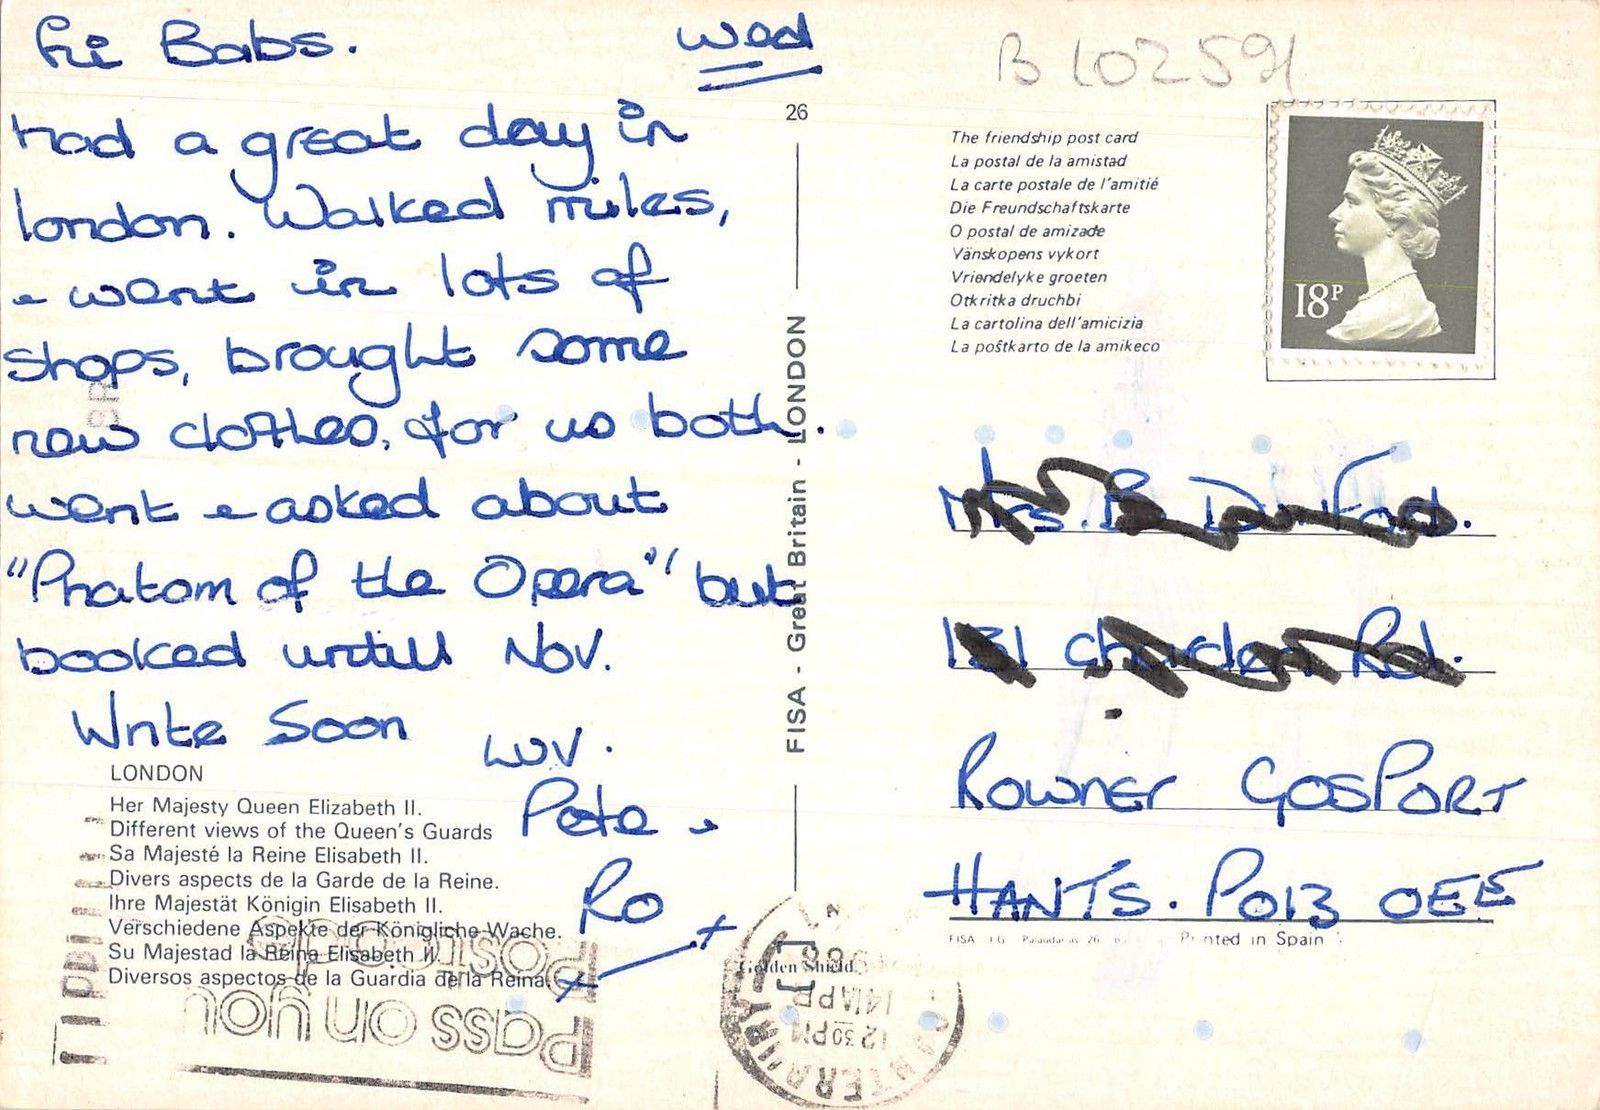 Hi Babs.
Wed
Had a great day in
london. Walked miles,
& went in lots of
shops, brought some
new clothes, for us both.
went & asked about
"Phatom of the Opera" but
booked untill Nov.
Write Soon
LUV.
Pete &
Ro
x x
LONDON
Her Majesty Queen Elizabeth II.
Different views of the Queen's Guards
Sa Majesté la Reine Elisabeth II.
Divers aspects de la Garde de la Reine.
Ihre Majestät Königin Elisabeth II.
Verschiedene Aspekte der Königliche Wache.
Su Majestad la Reina Elisabeth II.
Diversos aspectos de la Guardia de la Reina.
Pass on your
Postcode
26
FISA - Great Britain - LONDON
Golden Shield.
CANTERBURY
12 30 PM
14 APR
B 102591
The friendship post card
La postal de la amistad
La carte postale de l'amitié
Die Freundschaftskarte
O postal de amizade
Vänskopens vykort
Vriendelyke groeten
Otkritka druchbi
La cartolina dell'amicizia
La poŝtkarto de la amikeco
18P
Mrs. B
Rd.
ROWNER GOSPORT
HANTS. PO13 OEE
FISA I.G. 26 Printed in Spain